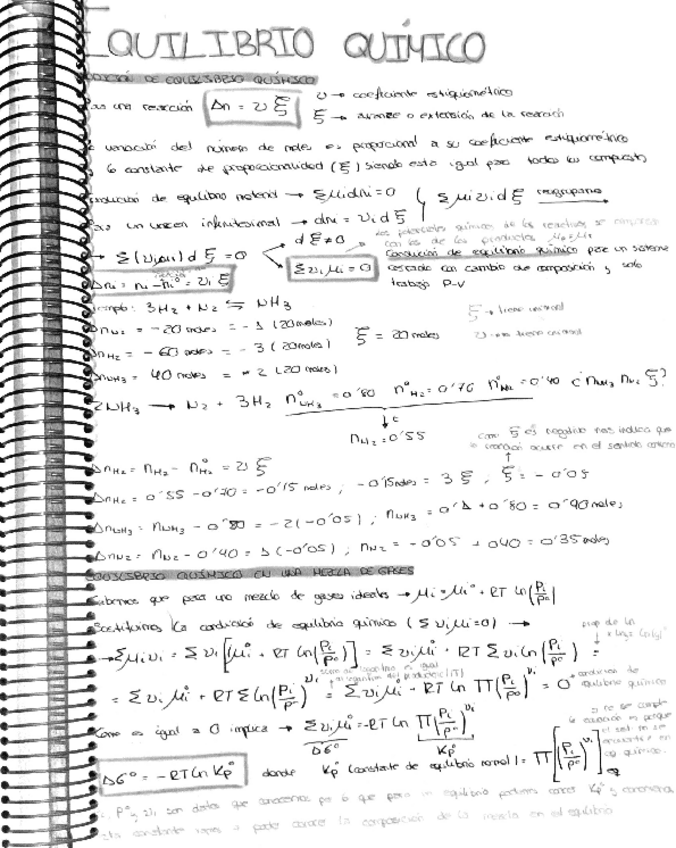 EQUILIBRIO QUÍMICO
CONDICIÓN DE EQUILIBRIO QUÍMICO
Para una reacción Δn = νξ ν → coeficiente estequiométrico
ξ → avance o extensión de la reacción
variación del número de moles es proporcional a su coeficiente estequiométrico
y la constante de proporcionalidad (ξ) siendo esta igual para todos los compuestos
condición de equilibrio material → Σμidni=0 Σμiνidξ reagrupamos
Para un avance infinitesimal → dni = νi dξ
→ Σ(νiμi)dξ = 0 dξ≠0 los potenciales químicos de los reactivos se comparan
con los de los productos
Σνiμi = 0 Condición de equilibrio químico para un sistema
cerrado con cambio de composición y solo
trabajo P-V
Δni = ni - ni° = νi ξ
Ejemplo: 3H2 + N2 ⇆ NH3 ξ → tiene unidad
ΔnN2 = -20 moles = -1 (20moles) ξ = 20 moles ν → no tiene unidad
ΔnH2 = -60 moles = -3 (20moles)
ΔnNH3 = 40 moles = +2 (20 moles)
2NH3 → N2 + 3H2 n°NH3 = 0'80 n°H2 = 0'70 n°N2 = 0'40 ¿nNH3 nN2 ξ?
nH2 = 0'55
como ξ es negativo nos indica que
la reacción ocurre en el sentido contrario
ΔnH2 = nH2 - n°H2 = νξ
ΔnH2 = 0'55 - 0'70 = -0'15 moles ; -0'15moles = 3ξ ; ξ = -0'05
ΔnNH3 = nNH3 - 0'80 = -2(-0'05) ; nNH3 = 0'1 + 0'80 = 0'90moles
ΔnN2 = nN2 - 0'40 = 1(-0'05) ; nN2 = -0'05 + 040 = 0'35 moles
EQUILIBRIO QUÍMICO EN UNA MEZCLA DE GASES
Sabemos que para una mezcla de gases ideales → μi = μi° + RT ln(Pi/P°)
Sustituimos la condición de equilibrio químico (Σνiμi=0) →
prop de ln
→ Σμiνi = Σνi[μi° + RT ln(Pi/P°)] = Σνiμi° + RT Σνi ln(Pi/P°) =
suma de logaritmos es igual
al logaritmo del producto (Π)
= Σνiμi° + RT Σ ln(Pi/P°)^νi = Σνiμi° + RT ln Π(Pi/P°)^νi = 0 condición de
equilibrio químico
Como es igual a 0 implica → Σνiμi° = -RT ln Π(Pi/P°)^νi
ΔG° Kp°
si no se cumple
la ecuación es porque
el sist no se
encuentra en
eq químico.
ΔG° = -RT ln Kp° donde Kp° (constante de equilibrio normal) = Π[(Pi/P°)^νi]eq
P° y νi son datos que conocemos por lo que para un equilibrio podremos conocer Kp° y
esta constante vamos a poder conocer la composición de la mezcla en el equilibrio